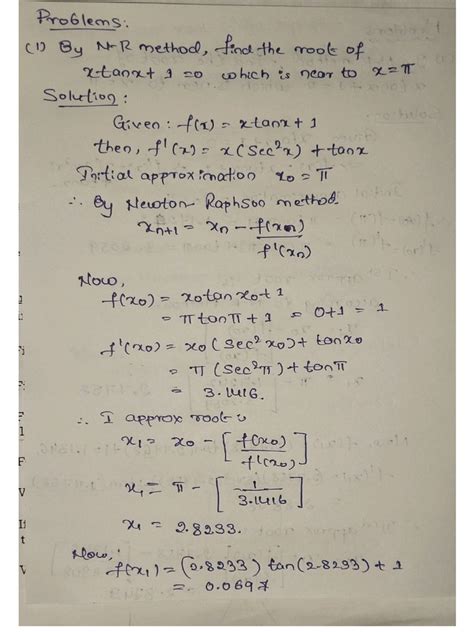 Problems:
(1) By N-R method, find the root of
xtanx + 1 = 0 which is near to x = π
Solution:
Given: f(x) = xtanx + 1
then, f'(x) = x(Sec²x) + tanx
Initial approximation x₀ = π
∴ By Newton-Raphson method
xₙ₊₁ = xₙ - f(xₙ)/f'(xₙ)
Now,
f(x₀) = x₀tanx₀+1
= πtanπ + 1 = 0+1 = 1
f'(x₀) = x₀(Sec²x₀) + tanx₀
= π(Sec²π) + tanπ
= 3.1416.
∴ I approx root is
x₁ = x₀ - [f(x₀)/f'(x₀)]
x₁ = π - [1/3.1416]
x₁ = 2.8233.
Now,
f(x₁) = (2.8233) tan(2.8233) + 1
= 0.0697